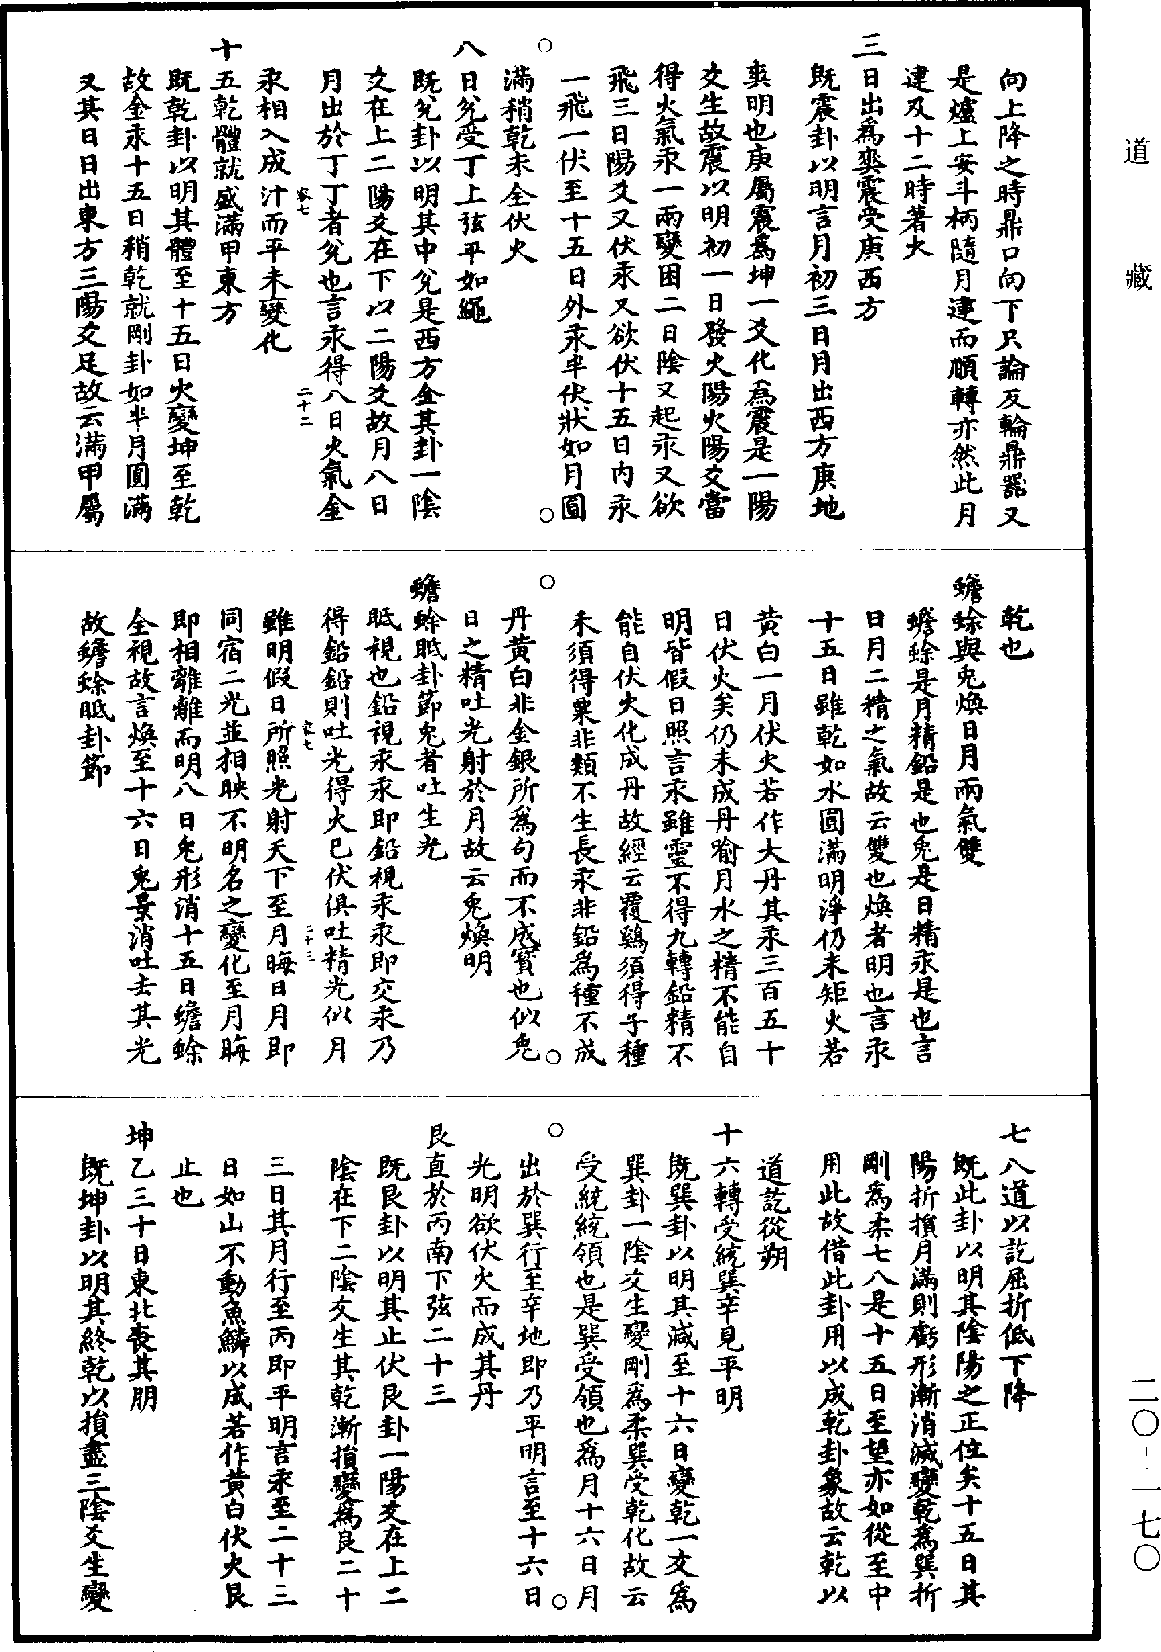 道藏
向上降之時鼎口向下只論及輪鼎器又
是爐上安斗柄隨月建而順轉亦然此月
建及十二時著火
三日出為爽震受庚西方
既震卦以明言月初三日月出西方庚地
爽明也庚屬震為坤一爻化為震是一陽
爻生故震以明初一日發火陽火陽爻當
得火氣汞一兩變困二日陰又起汞又欲
飛三日陽爻又伏汞又欲伏十五日内汞
一飛一伏至十五日外汞半伏狀如月圓
滿稍乾未全伏火
八日兌受丁上弦平如繩
既兌卦以明其中兌是西方金其卦一陰
爻在上二陽爻在下以二陽爻故月八日
月出於丁丁者兌也言汞得八日火氣全
容七
二十二
汞相入成汁而平未變化
十五乾體就盛滿甲東方
既乾卦以明其體至十五日火變坤至乾
故金汞十五日稍乾就剛卦如半月圓滿
又其日日出東方三陽爻足故云滿甲屬
乾也
蟾蜍與兔煥日月兩氣雙
蟾蜍是月精鉛是也兔是日精汞是也言
日月二精之氣故云雙也煥者明也言汞
十五日雖乾如水圓滿明淨仍未矩火若
黄白一月伏火若作大丹其汞三百五十
日伏火矣仍未成丹喻月水之精不能自
明皆假日照言汞雖靈不得九轉鉛精不
能自伏火化成丹故經云覆鷄須得子種
禾須得粟非類不生長汞非鉛為種不成
丹黄白非金銀所為句而不成寶也似兔
日之精吐光射於月故云兔煥明
蟾蜍眡卦節兔者吐生光
眡視也鉛視汞汞即鉛視汞汞即交汞乃
得鉛鉛則吐光得火已伏俱吐精光似月
容七
二十三
雖明假日所照光射天下至月晦日月即
同宿二光並相映不明名之變化至月晦
即相離離而明八日兔形消十五日蟾蜍
全視故言煥至十六日兔景消吐去其光
故蟾蜍眡卦節
七八道以訖屈折低下降
既此卦以明其陰陽之正位矣十五日其
陽折損月滿則虧形漸消減變乾為巽折
剛為柔七八是十五日至望亦如從至中
用此故借此卦用以成乾卦象故云乾以
道訖從朔
十六轉受統巽辛見平明
既巽卦以明其減至十六日變乾一爻為
巽卦一陰爻生變剛為柔巽受乾化故云
受統統領也是巽受領也為月十六日月
出於巽行至辛地即乃平明言至十六日
光明欲伏火而成其丹
艮直於丙南下弦二十三
既艮卦以明其止伏艮卦一陽爻在上二
陰在下二陰爻生其乾漸損變為艮二十
三日其月行至丙即平明言汞至二十三
日如山不動魚鱗以成若作黄白伏火艮
止也
坤乙三十日東北喪其朋
既坤卦以明其終乾以損盡三陰爻生變
二〇-一七〇